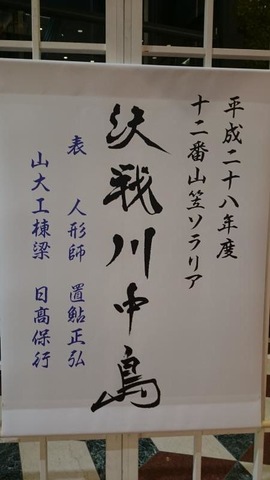 平成二十八年度
十二番山笠ソラリア
決戦川中島
表　人形師　置鮎正弘
山大工棟梁　日高保行